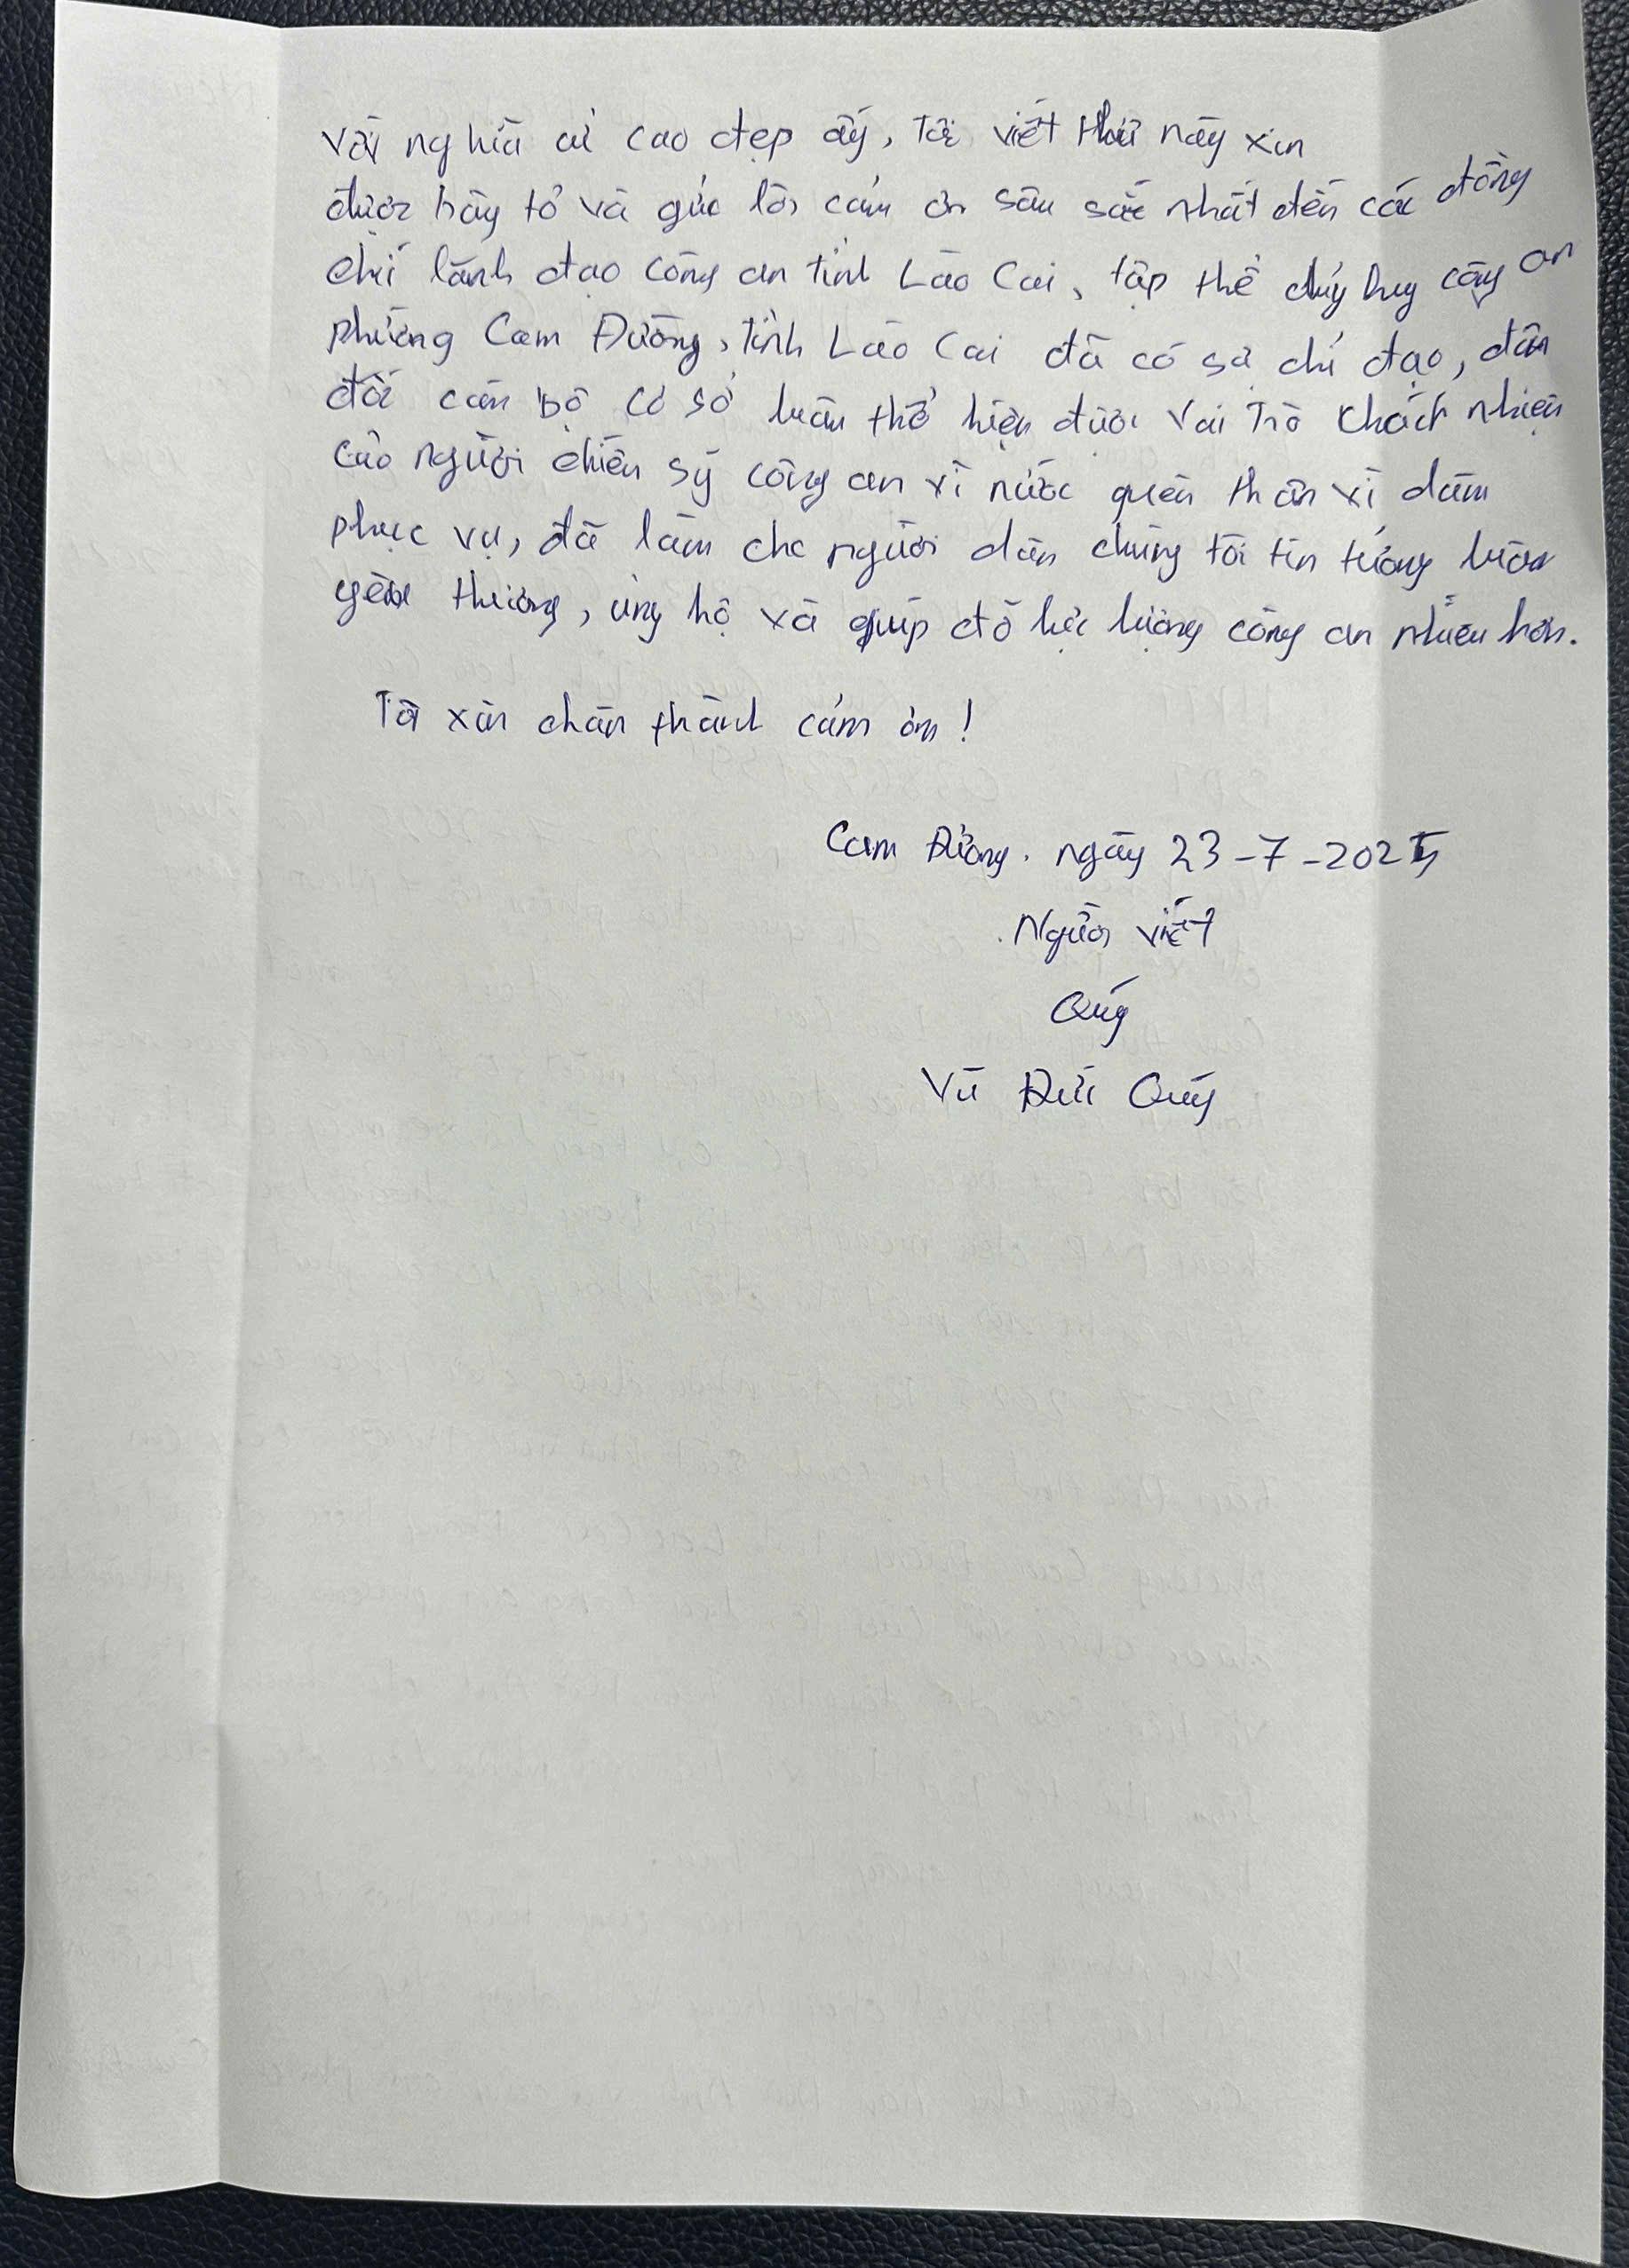 Với nghĩa cử cao đẹp ấy, Tôi viết thư này xin
được bày tỏ và gửi lời cám ơn sâu sắc nhất đến các đồng
chí lãnh đạo công an tỉnh Lào Cai, tập thể chỉ huy công an
phường Cam Đường, tỉnh Lào Cai đã có sự chỉ đạo, dẫn
dắt cán bộ cơ sở luôn thể hiện được vai trò trách nhiệm
của người chiến sỹ công an vì nước quên thân vì dân
phục vụ, đã làm cho người dân chúng tôi tin tưởng luôn
yêu thương, ủng hộ và giúp đỡ lực lượng công an nhiều hơn.
Tôi xin chân thành cám ơn!
Cam Đường. ngày 23-7-2025
Người viết
Quý
Vũ Đức Quý